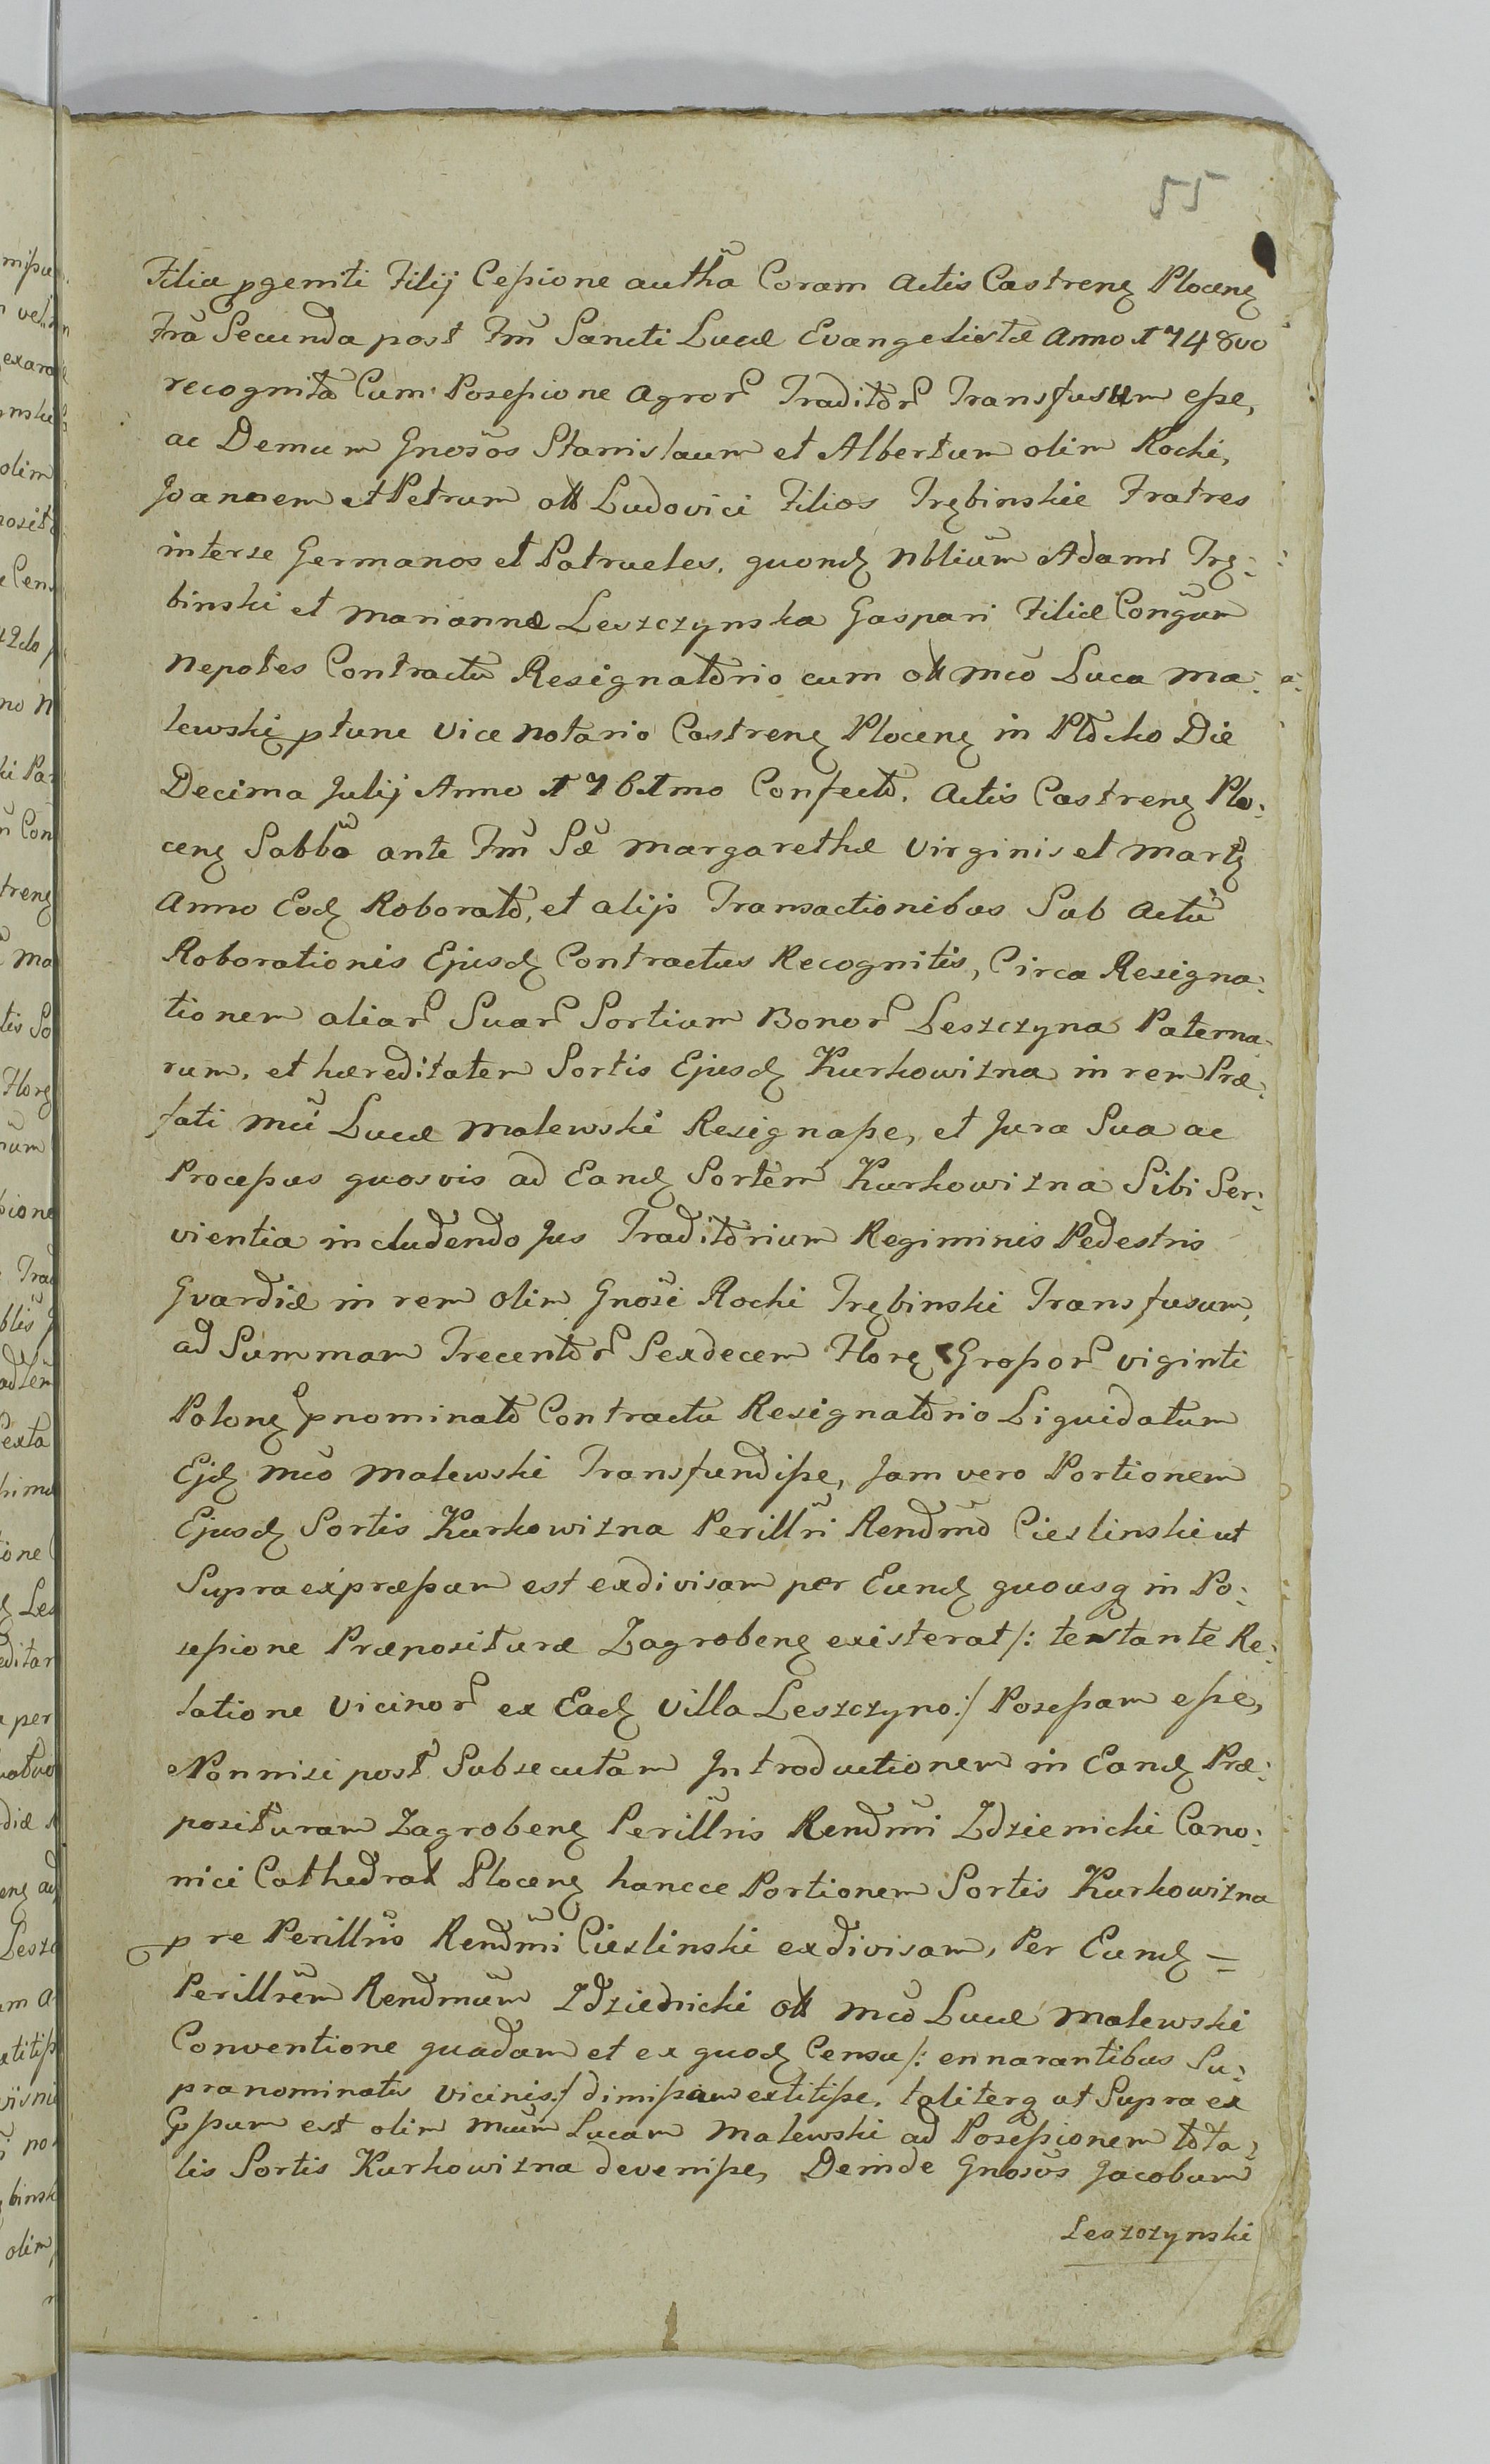 55
Filiæ pgeniti Filij Cessione autha Coram Actis Castreng Ploceng
Fra Secunda post Fm Sancti Lucæ Evangelistæ Anno 1748vo
recognita Cum Possessione Agror Traditor Transfusum esse,
ac Demum Gnosos Stanislaum et Albertum olim Rochi,
Joannem et Petrum oll Ludovici Filios Trębinskie Fratres
interse Germanos et Patrueles, quond Nblium Adami Trę:
binski et Mariannæ Leszczynska Gaspari Filiæ Congum
Nepotes Contractu Resignatorio cum oll Mco Luca Ma:
lewski ptunc Vice Notario Castreng Ploceng in Plocko Die
Decima Julij Anno 1761mo Confecto, Actis Castreng Plo:
ceng Sabbo ante Fm Sæ Margarethæ Virginis et Martg
Anno Eod Roborato, et alijs Transactionibus Sub Actu
Roborationis Ejusd Contractus Recognitis, Circa Resigna:
tionem aliar Suar Sortium Bonor Leszczyna Paterna:
rum, et hæreditatem Sortis Ejusd Kurkowizna in rem Præ:
fati Mci Lucæ Malewski Resignasse, et Jura Sua ac
Processus quosvis ad Eand Sortem Kurkowizna Sibi Ser:
vientia includendo Jus Traditorium Regiminis Pedestris
Gvardiæ in rem olim Gnosi Rochi Trębinski Transfusum,
ad Summam Trecentor Sexdecem Floreg Grossor viginti
Poloneg pnominato Contractu Resignatorio Liquidatum
Ejd Mco Malewski Transfundisse, Jam vero Portionem
Ejusd Sortis Kurkowizna Perillri Rendmo Cieslinski ut
Supra expræssum est exdivisam per Eund quousq in Po:
sessione Præpositura Zagrobeng existerat /: testante Re:
latione Vicinor ex Ead Villa Leszczyno :/ Possessam esse,
Nonnisi post Subsecutam Introductionem in Eand Præ:
posituram Zagrobeng Perillris Rendmi Zdzienicki Cano:
nici Cathedral Ploceng hancce Portionem Sortis Kurkowizna
p re Perillris Rendmi Cieslinski exdivisam, Per Eund =
Perillrem Rendmum Zdziednicki oll Mco Lucæ Malewski
Conventione quadam et ex quod Censu /: ennarantibus Su:
pranominatis Vicinis :/ dimissam extitisse, taliterq ut Supra ex
pssum est olim Mcum Lucam Malewski ad Possessionem tota:
lis Sortis Kurkowizna devenisse, Deinde Gnosos Jacobum
Leszczynski